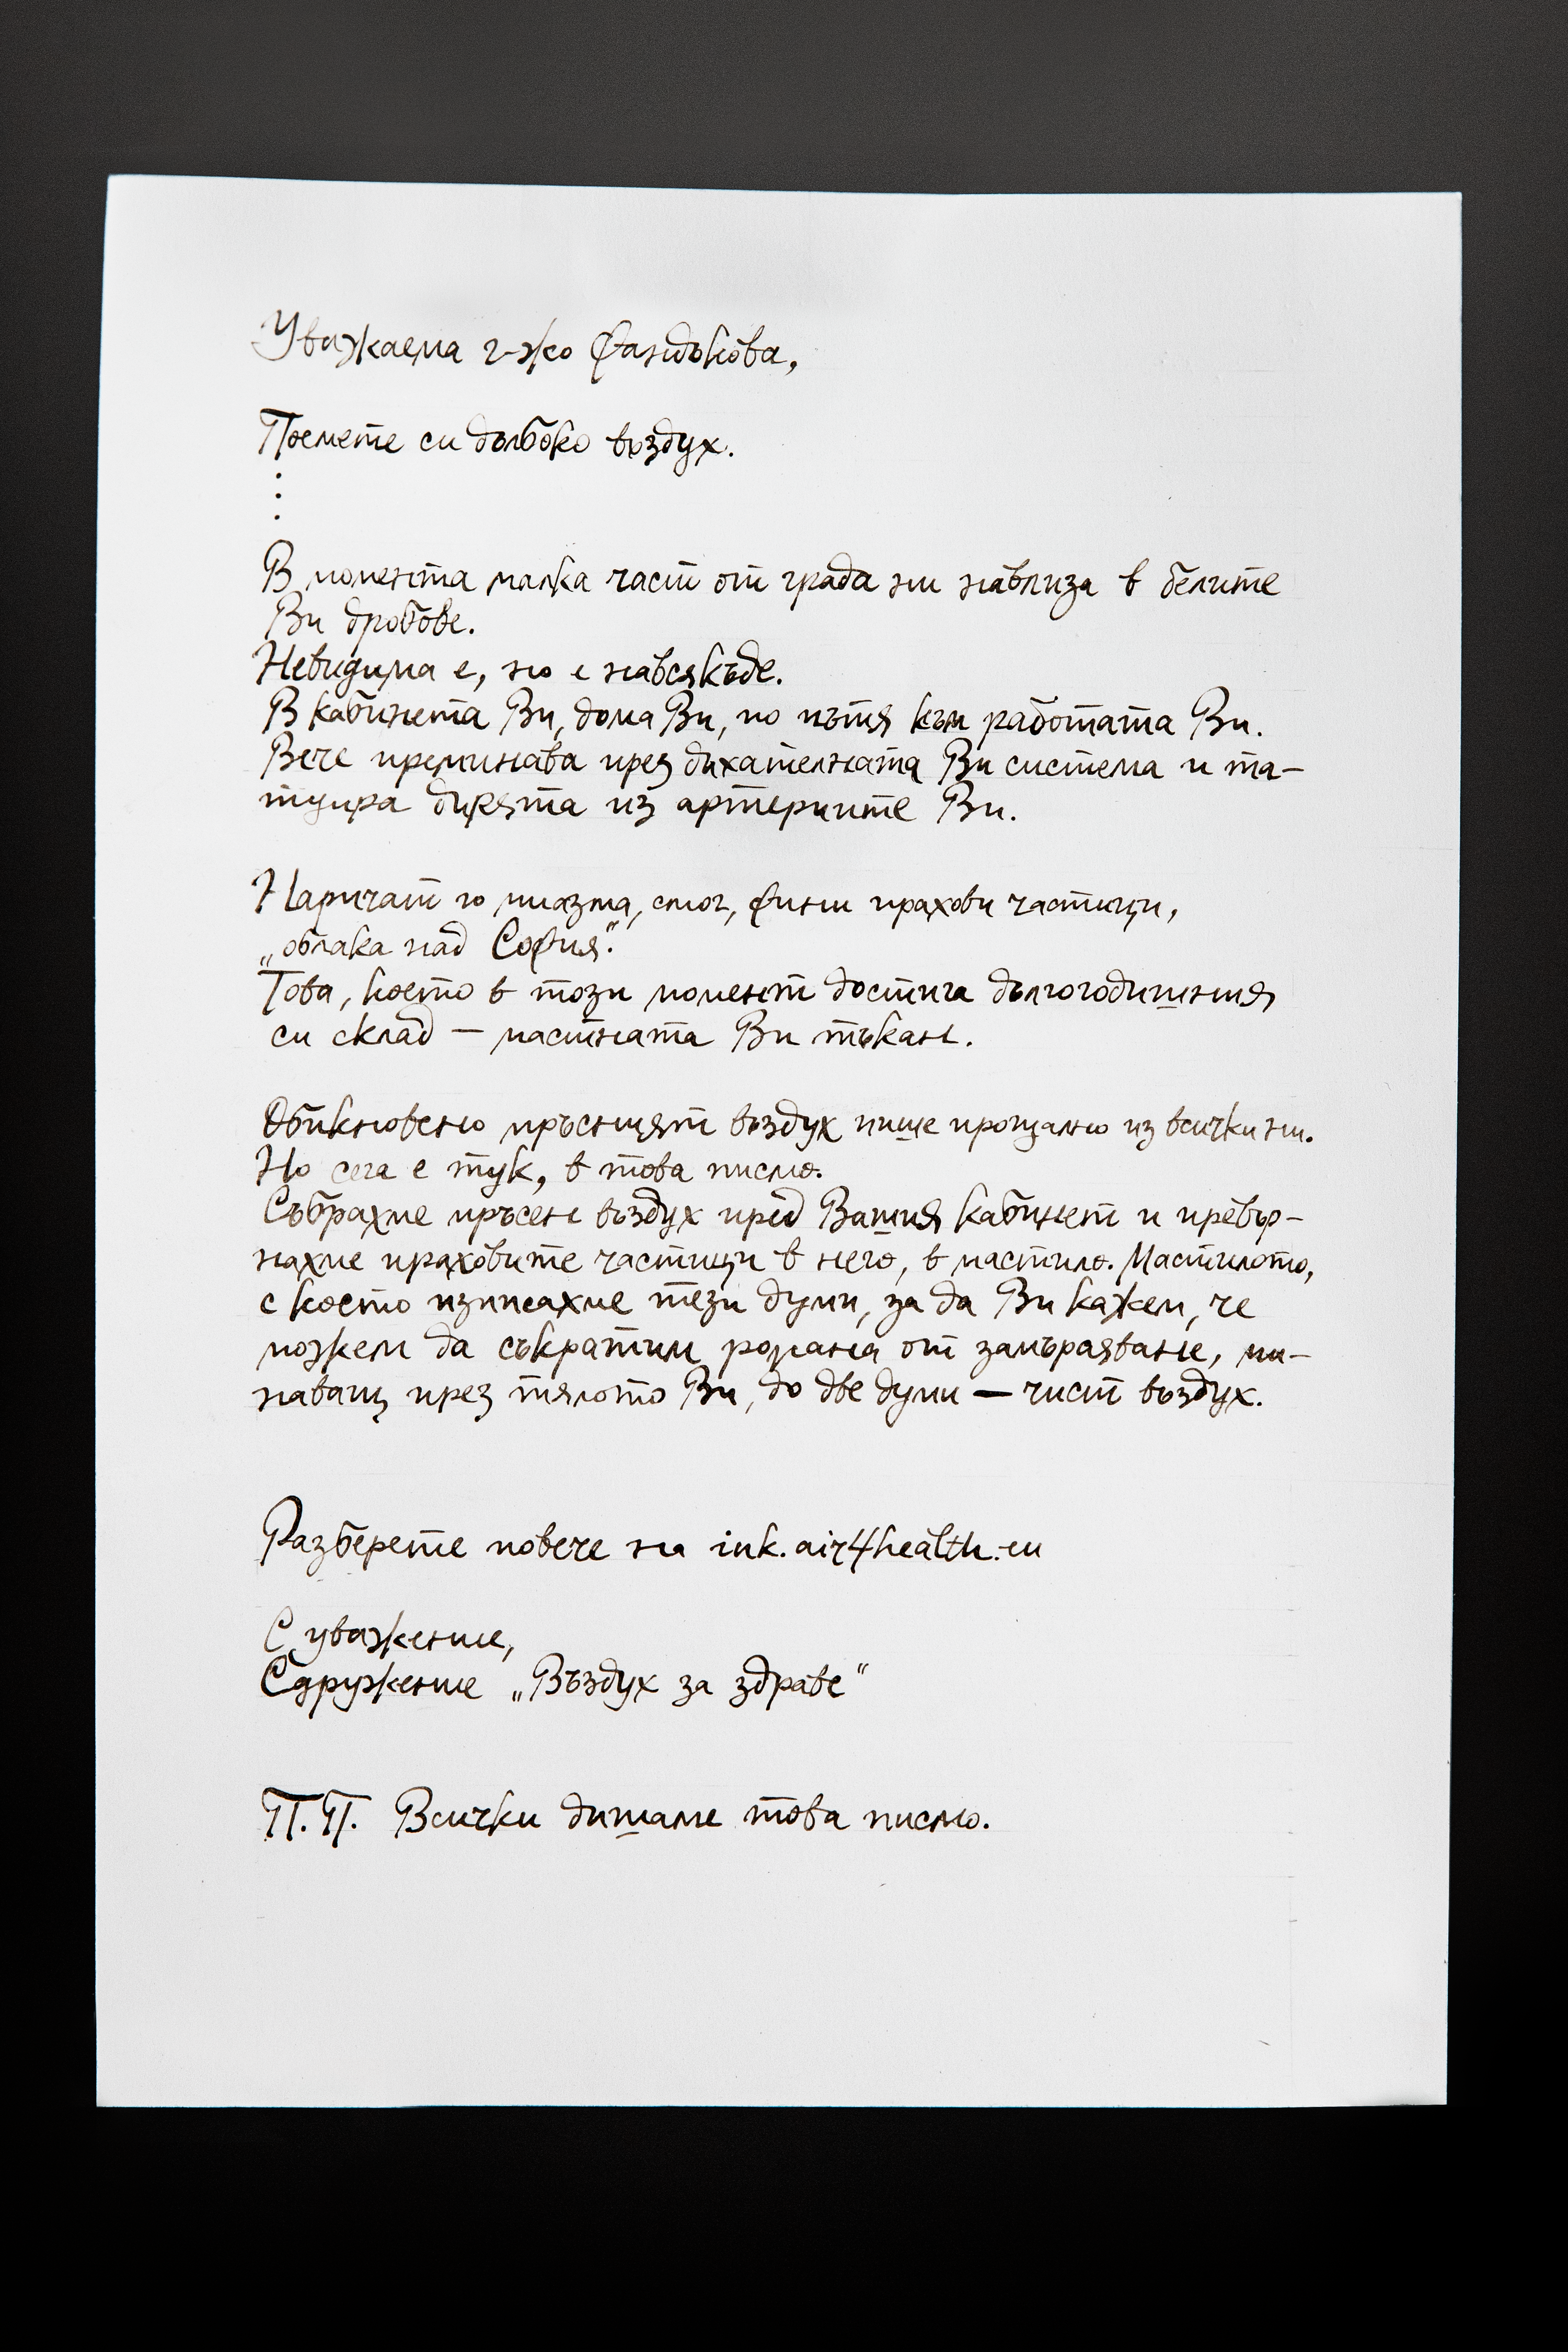 Уважаема г-жо Фандъкова,
Поемете си дълбоко въздух.
⋮
В момента малка част от града ни навлиза в белите
Ви дробове.
Невидима е, но е навсякъде.
В кабинета Ви, дома Ви, по пътя към работата Ви.
Вече преминава през дихателната Ви система и та-
туира дирята из артериите Ви.
Наричат го миазма, смог, фини прахови частици,
„облака над София“.
Това, което в този момент достига дългогодишния
си склад — мастната Ви тъкан.
Обикновено мръсният въздух пише прощално из всички ни.
Но сега е тук, в това писмо.
Събрахме мръсен въздух пред Вашия кабинет и превър-
нахме праховите частици в него, в мастило. Мастилото,
с което изписахме тези думи, за да Ви кажем, че
можем да съкратим романа от замърсяване, ми-
наващ през тялото Ви, до две думи — чист въздух.
Разберете повече на ink.air4health.eu
С уважение,
Сдружение „Въздух за здраве“
П.П. Всички дишаме това писмо.